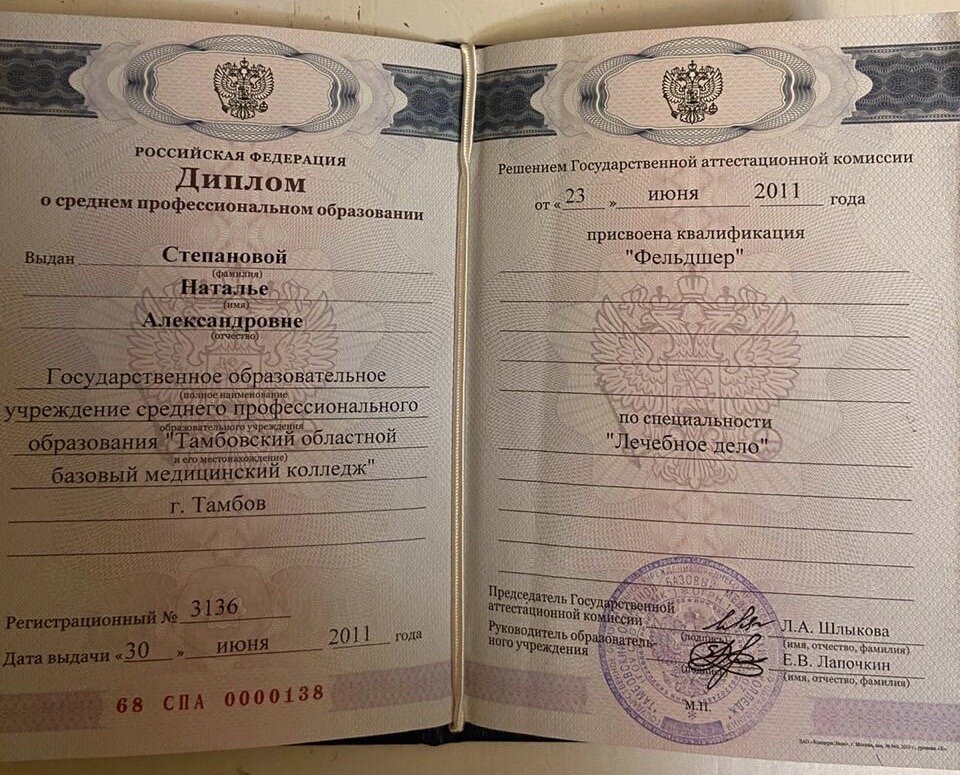 РОССИЙСКАЯ ФЕДЕРАЦИЯ
Диплом
о среднем профессиональном образовании
Выдан Степановой
(фамилия)
Наталье
(имя)
Александровне
(отчество)
Государственное образовательное
(полное наименование
учреждение среднего профессионального
образовательного учреждения
образования "Тамбовский областной
и его местонахождение)
базовый медицинский колледж"
г. Тамбов
Регистрационный № 3136
Дата выдачи «30 » июня 2011 года
68 СПА 0000138
Решением Государственной аттестационной комиссии
от «23 » июня 2011 года
присвоена квалификация
"Фельдшер"
по специальности
"Лечебное дело"
Председатель Государственной
аттестационной комиссии
(подпись)
Л.А. Шлыкова
(имя, отчество, фамилия)
Руководитель образователь-
ного учреждения
(подпись)
Е.В. Лапочкин
(имя, отчество, фамилия)
М.П.